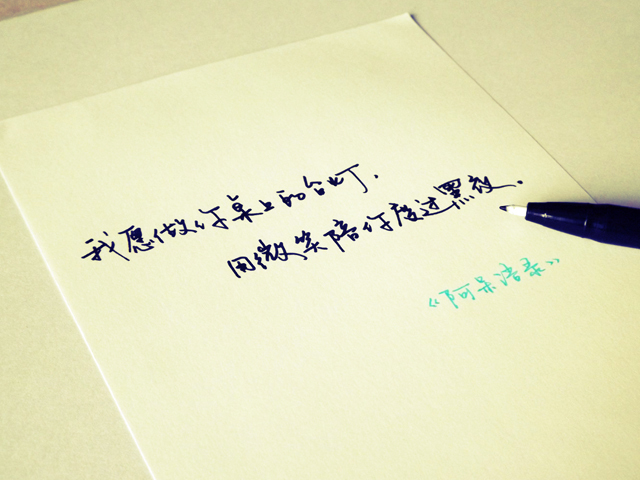 我愿做你桌上的台灯.
用微笑陪你度过黑夜.
《阿呆语录》